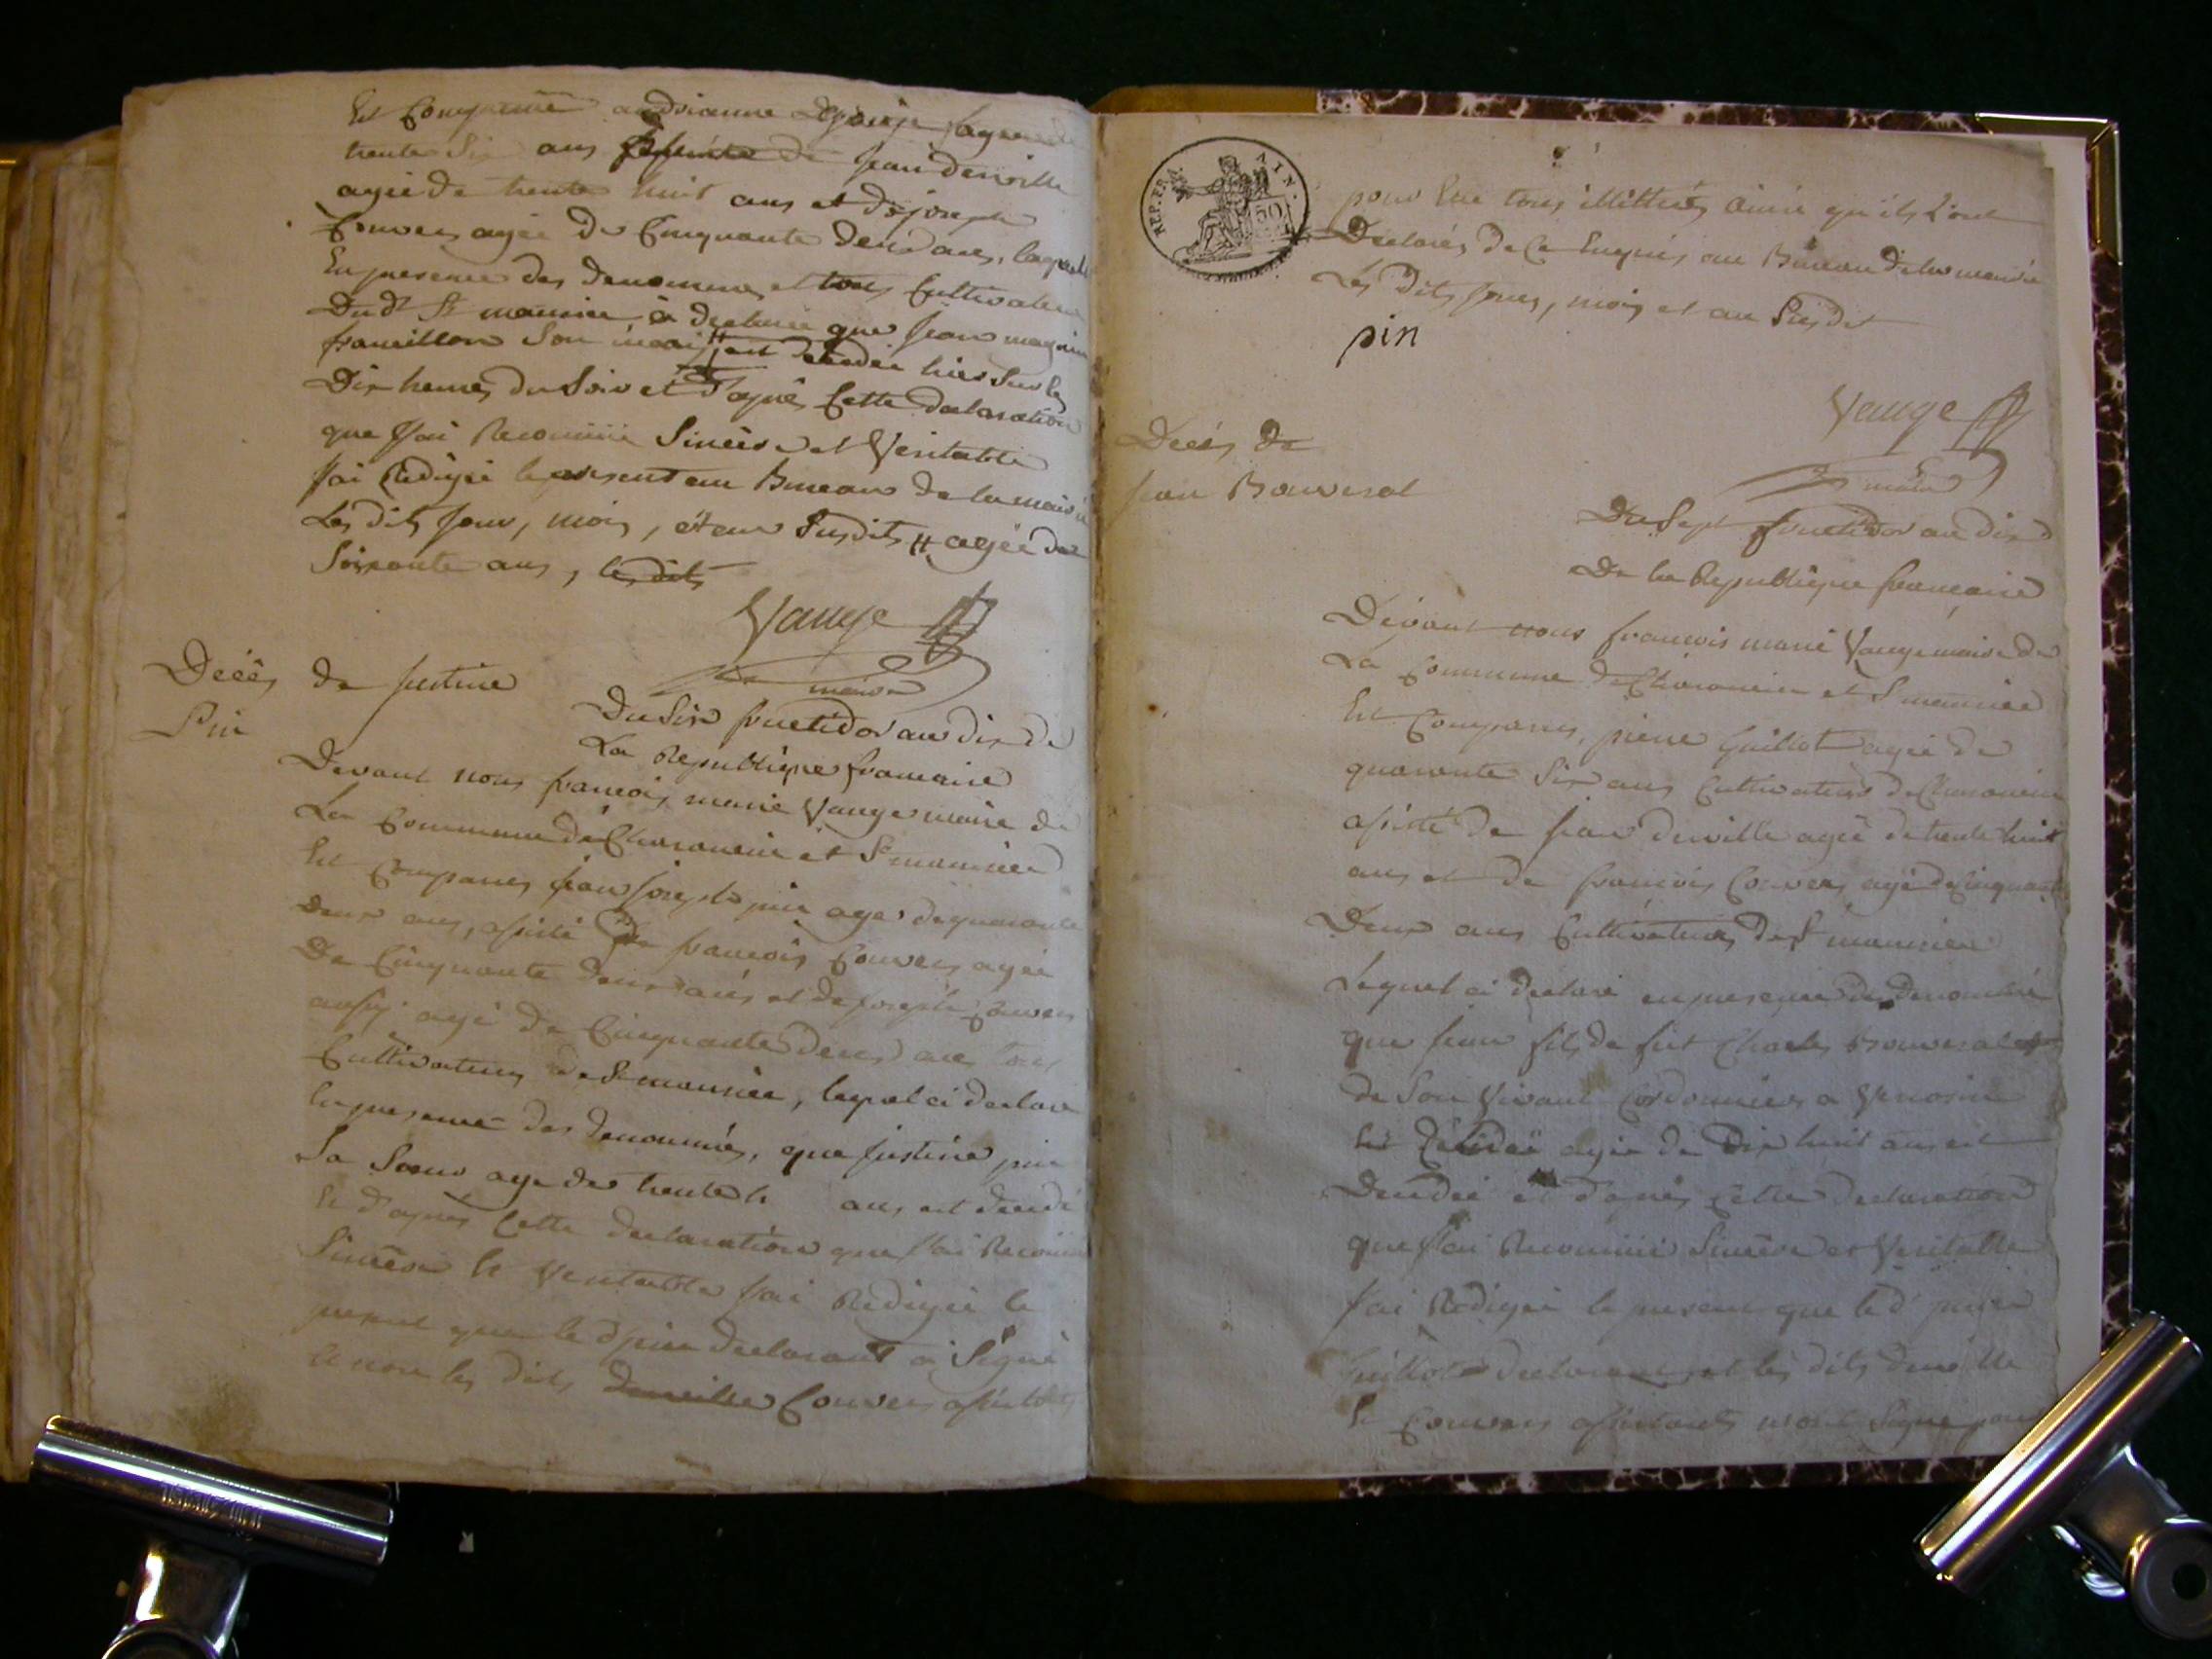 Est Comparüe andrianne agée de
trente Six ans de jean deriville
agée de trente huit ans et de joseph
Convers agée de Cinquante deux ans, laquelle
En presence des denommés et tous Cultivateurs
Du dt St maurice à declaré que jean
françillon Son mari # est décédée hier Sur les
Dix heures du Soir et d'aprés Cette declaration
que j'ai Reconnüe Sincére et Veritable
j'ai Redigée le present au Bureau de la mairie
Les dits jour, mois, et an Susdits # agée de
Soixante ans, les dits
Vauge
maire
Décés de justine
Pin
Du Six fructidor an dix de
La Republique francaise
Devant nous francois marie Vauge maire de
La Commune de Charancin et St maurice
Est Comparus jean joseph pin agée de quarante
deux ans, assisté de francois Convers agée
De Cinquante deux ans et de joseph Convers
aussy agé de Cinquante deux ans tous
Cultivateurs de St maurice, lequel a declaré
En presence des denommés, que justine pin
Sa Soeur agée de trente ans est décédé
Et d'aprés Cette declaration que j'ai Reconnüe
Sincére Et Veritable j'ai Redigée le
present que le d pin declarant a Signé
Et non les dits deriville Convers assistants
REP. FRA. AIN. 50
pour Etre tous illittrés ainsi qu'ils L'ont
Declarés de Ce Enquis au Bureau de la mairie
Les Dits jour, mois et an Susdit
pin
Vauge
maire
Decés de
jean Bouverat
Du Sept fructidor an dix
De la Republique francaise
Devant nous francois marie Vauge maire de
La Commune de Charancin et St maurice
Est Comparus, pierre Guillot agée de
quarante Six ans Cultivateur de Charancin
assisté de jean deriville agée de trente huit
ans et de francois Convers agé de Cinquante
Deux ans Cultivateurs de St maurice
Lequel a declaré en presence des denommé
que jean fils de feit Charles Bouverat
de Son Vivant Cordonnier a
agée de Dix huit ans est
Decedée et d'aprés Cette declaration
que j'ai Reconnüe Sincére et Veritable
j'ai Redigée le present que le dt pierre
Guillot declarant et les dits deriville
Et Convers assistants n'ont Signé pour